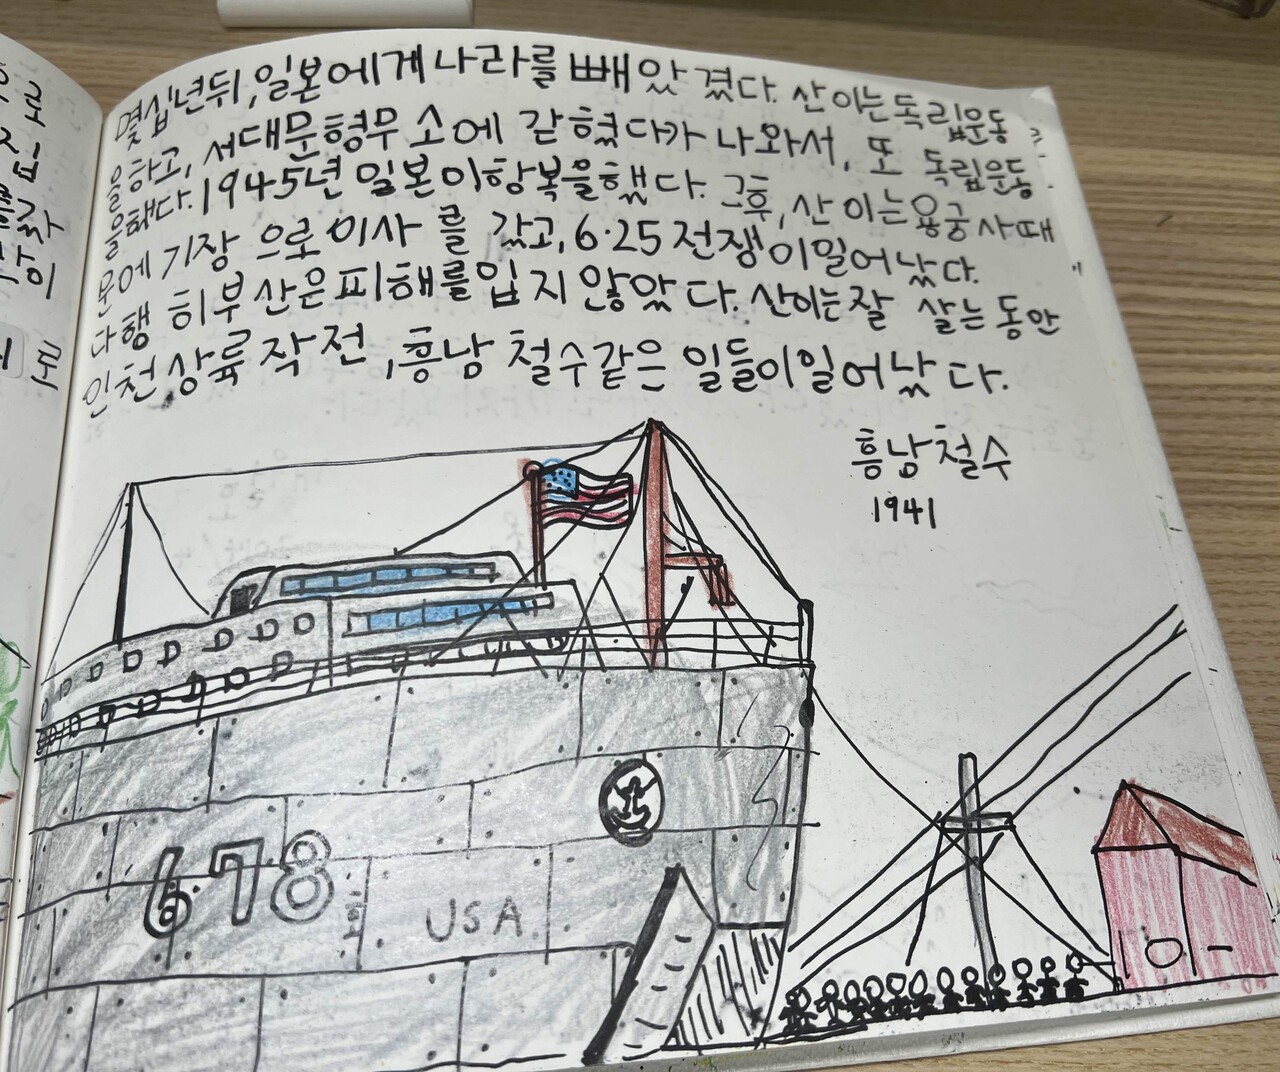 로
집
글자
산이
로
몇십년뒤, 일본에게 나라를 빼았겼다. 산이는 독립운동
을하고, 서대문형무소에 갇혔다가 나와서, 또 독립운동
을했다. 1945년 일본이항복을했다. 그후, 산이는용궁사때
문에 기장으로 이사를 갔고, 6·25 전쟁이일어났다.
다행히부산은피해를입지않았다. 산이는잘 살는동안
인천상륙작전, 흥남 철수같은 일들이일어났다.
흥남철수
1941
678
USA